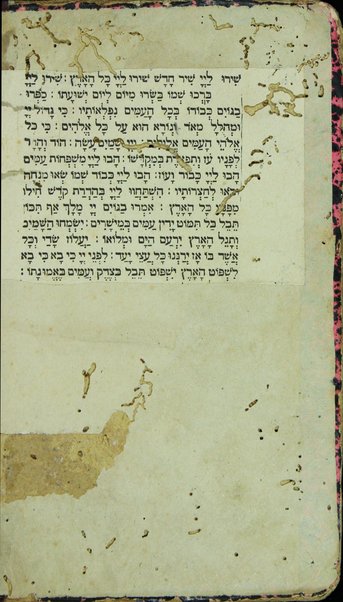 שִׁירוּ לַיְיָ שִׁיר חָדָשׁ שִׁירוּ לַיְיָ כָּל הָאָרֶץ : שִׁירוּ לַיְיָ
בָּרְכוּ שְׁמוֹ בַּשְּׂרוּ מִיּוֹם לְיוֹם יְשׁוּעָתוֹ : סַפְּרוּ
בַגּוֹיִם כְּבוֹדוֹ בְּכָל הָעַמִּים נִפְלְאוֹתָיו : כִּי גָדוֹל יְיָ
וּמְהֻלָּל מְאֹד נוֹרָא הוּא עַל כָּל אֱלֹהִים : כִּי כָּל
אֱלֹהֵי הָעַמִּים אֱלִילִים וַיְיָ שָׁמַיִם עָשָׂה : הוֹד וְהָדָר
לְפָנָיו עֹז וְתִפְאֶרֶת בְּמִקְדָּשׁוֹ : הָבוּ לַיְיָ מִשְׁפְּחוֹת עַמִּים
הָבוּ לַיְיָ כָּבוֹד וָעוֹז : הָבוּ לַיְיָ כְּבוֹד שְׁמוֹ שְׂאוּ מִנְחָה
וּבֹאוּ לְחַצְרוֹתָיו : הִשְׁתַּחֲווּ לַיְיָ בְּהַדְרַת קֹדֶשׁ חִילוּ
מִפָּנָיו כָּל הָאָרֶץ : אִמְרוּ בַגּוֹיִם יְיָ מָלָךְ אַף תִּכּוֹן
תֵּבֵל בַּל תִּמּוֹט יָדִין עַמִּים בְּמֵישָׁרִים : יִשְׂמְחוּ הַשָּׁמַיִם
וְתָגֵל הָאָרֶץ יִרְעַם הַיָּם וּמְלוֹאוֹ : יַעֲלוֹז שָׂדַי וְכָל
אֲשֶׁר בּוֹ אָז יְרַנְּנוּ כָּל עֲצֵי יָעַר : לִפְנֵי יְיָ כִּי בָא כִּי בָא
לִשְׁפּוֹט הָאָרֶץ יִשְׁפּוֹט תֵּבֵל בְּצֶדֶק וְעַמִּים בֶּאֱמוּנָתוֹ :